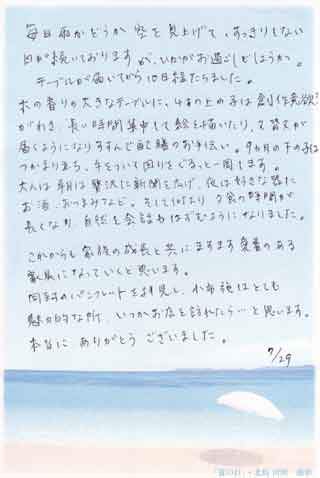 毎日雨かどうか空を見上げて、すっきりしない
日が続いておりますが、いかがお過ごしでしょうか。
テーブルが届いてから10日経たちました。
木の香りの大きなテーブルに、4才の上の子は創作意欲が
わき、長い時間集中して絵を描いたり、て背丈が
届くようになりすすんで配膳のお手伝い。9ヵ月の下の子は
つかまり立ち、手をついて回りをぐるっと一周します。
大人は朝は贅沢に新聞を広げ、夜は好きな器に
お酒、おつまみなど。そして何より夕食の時間が
長くなり、自然と会話もはずむようになりました。
これからも家族の成長と共にますます愛着のある
家具になっていくと思います。
同封のパンフレットを拝見し、小布施はとても
魅力的な所、いつかお店を訪れたら…と思います。
本当にありがとうございました。
7/29